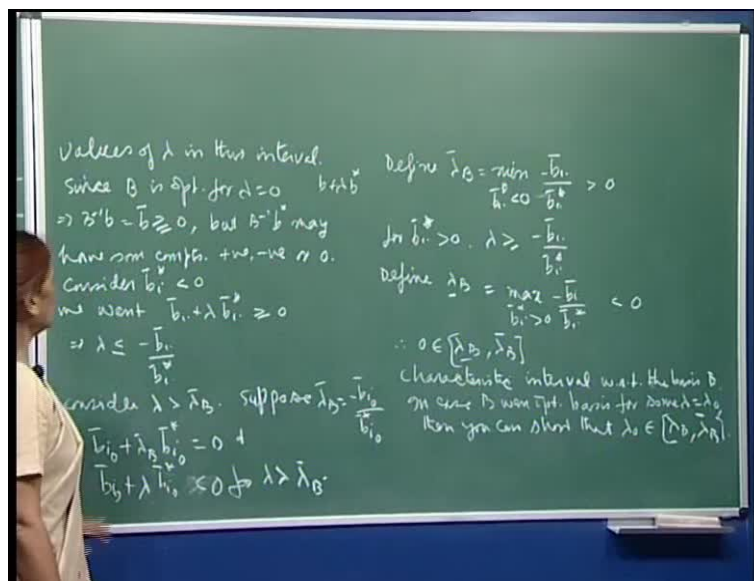 values of λ in this interval.
since B is opt. for λ=0 b+λb*
⇒ B⁻¹b = b̄ ≥ 0, but B⁻¹b* may
have som compts. +ve, -ve or 0.
consider b̄ᵢ* < 0
we want b̄ᵢ + λ b̄ᵢ* ≥ 0
⇒ λ ≤ -b̄ᵢ / b̄ᵢ*
consider λ > λ̄_B. suppose λ̄_B = -b̄ᵢ₀ / b̄ᵢ₀*
b̄ᵢ₀ + λ̄_B b̄ᵢ₀* = 0 &
b̄ᵢ₀ + λ b̄ᵢ₀* < 0 for λ > λ̄_B.
Define λ̄_B = min b̄ᵢ*<0 -b̄ᵢ / b̄ᵢ* > 0
for b̄ᵢ* > 0. λ ≥ -b̄ᵢ / b̄ᵢ*
Define λ̲_B = max b̄ᵢ*>0 -b̄ᵢ / b̄ᵢ* < 0
∴ 0 ∈ [λ̲_B, λ̄_B]
characteristic interval w.r.t. the basis B.
In case B were opt. basis for some λ=λ₀
then you can show that λ₀ ∈ [λ̲_B, λ̄_B].